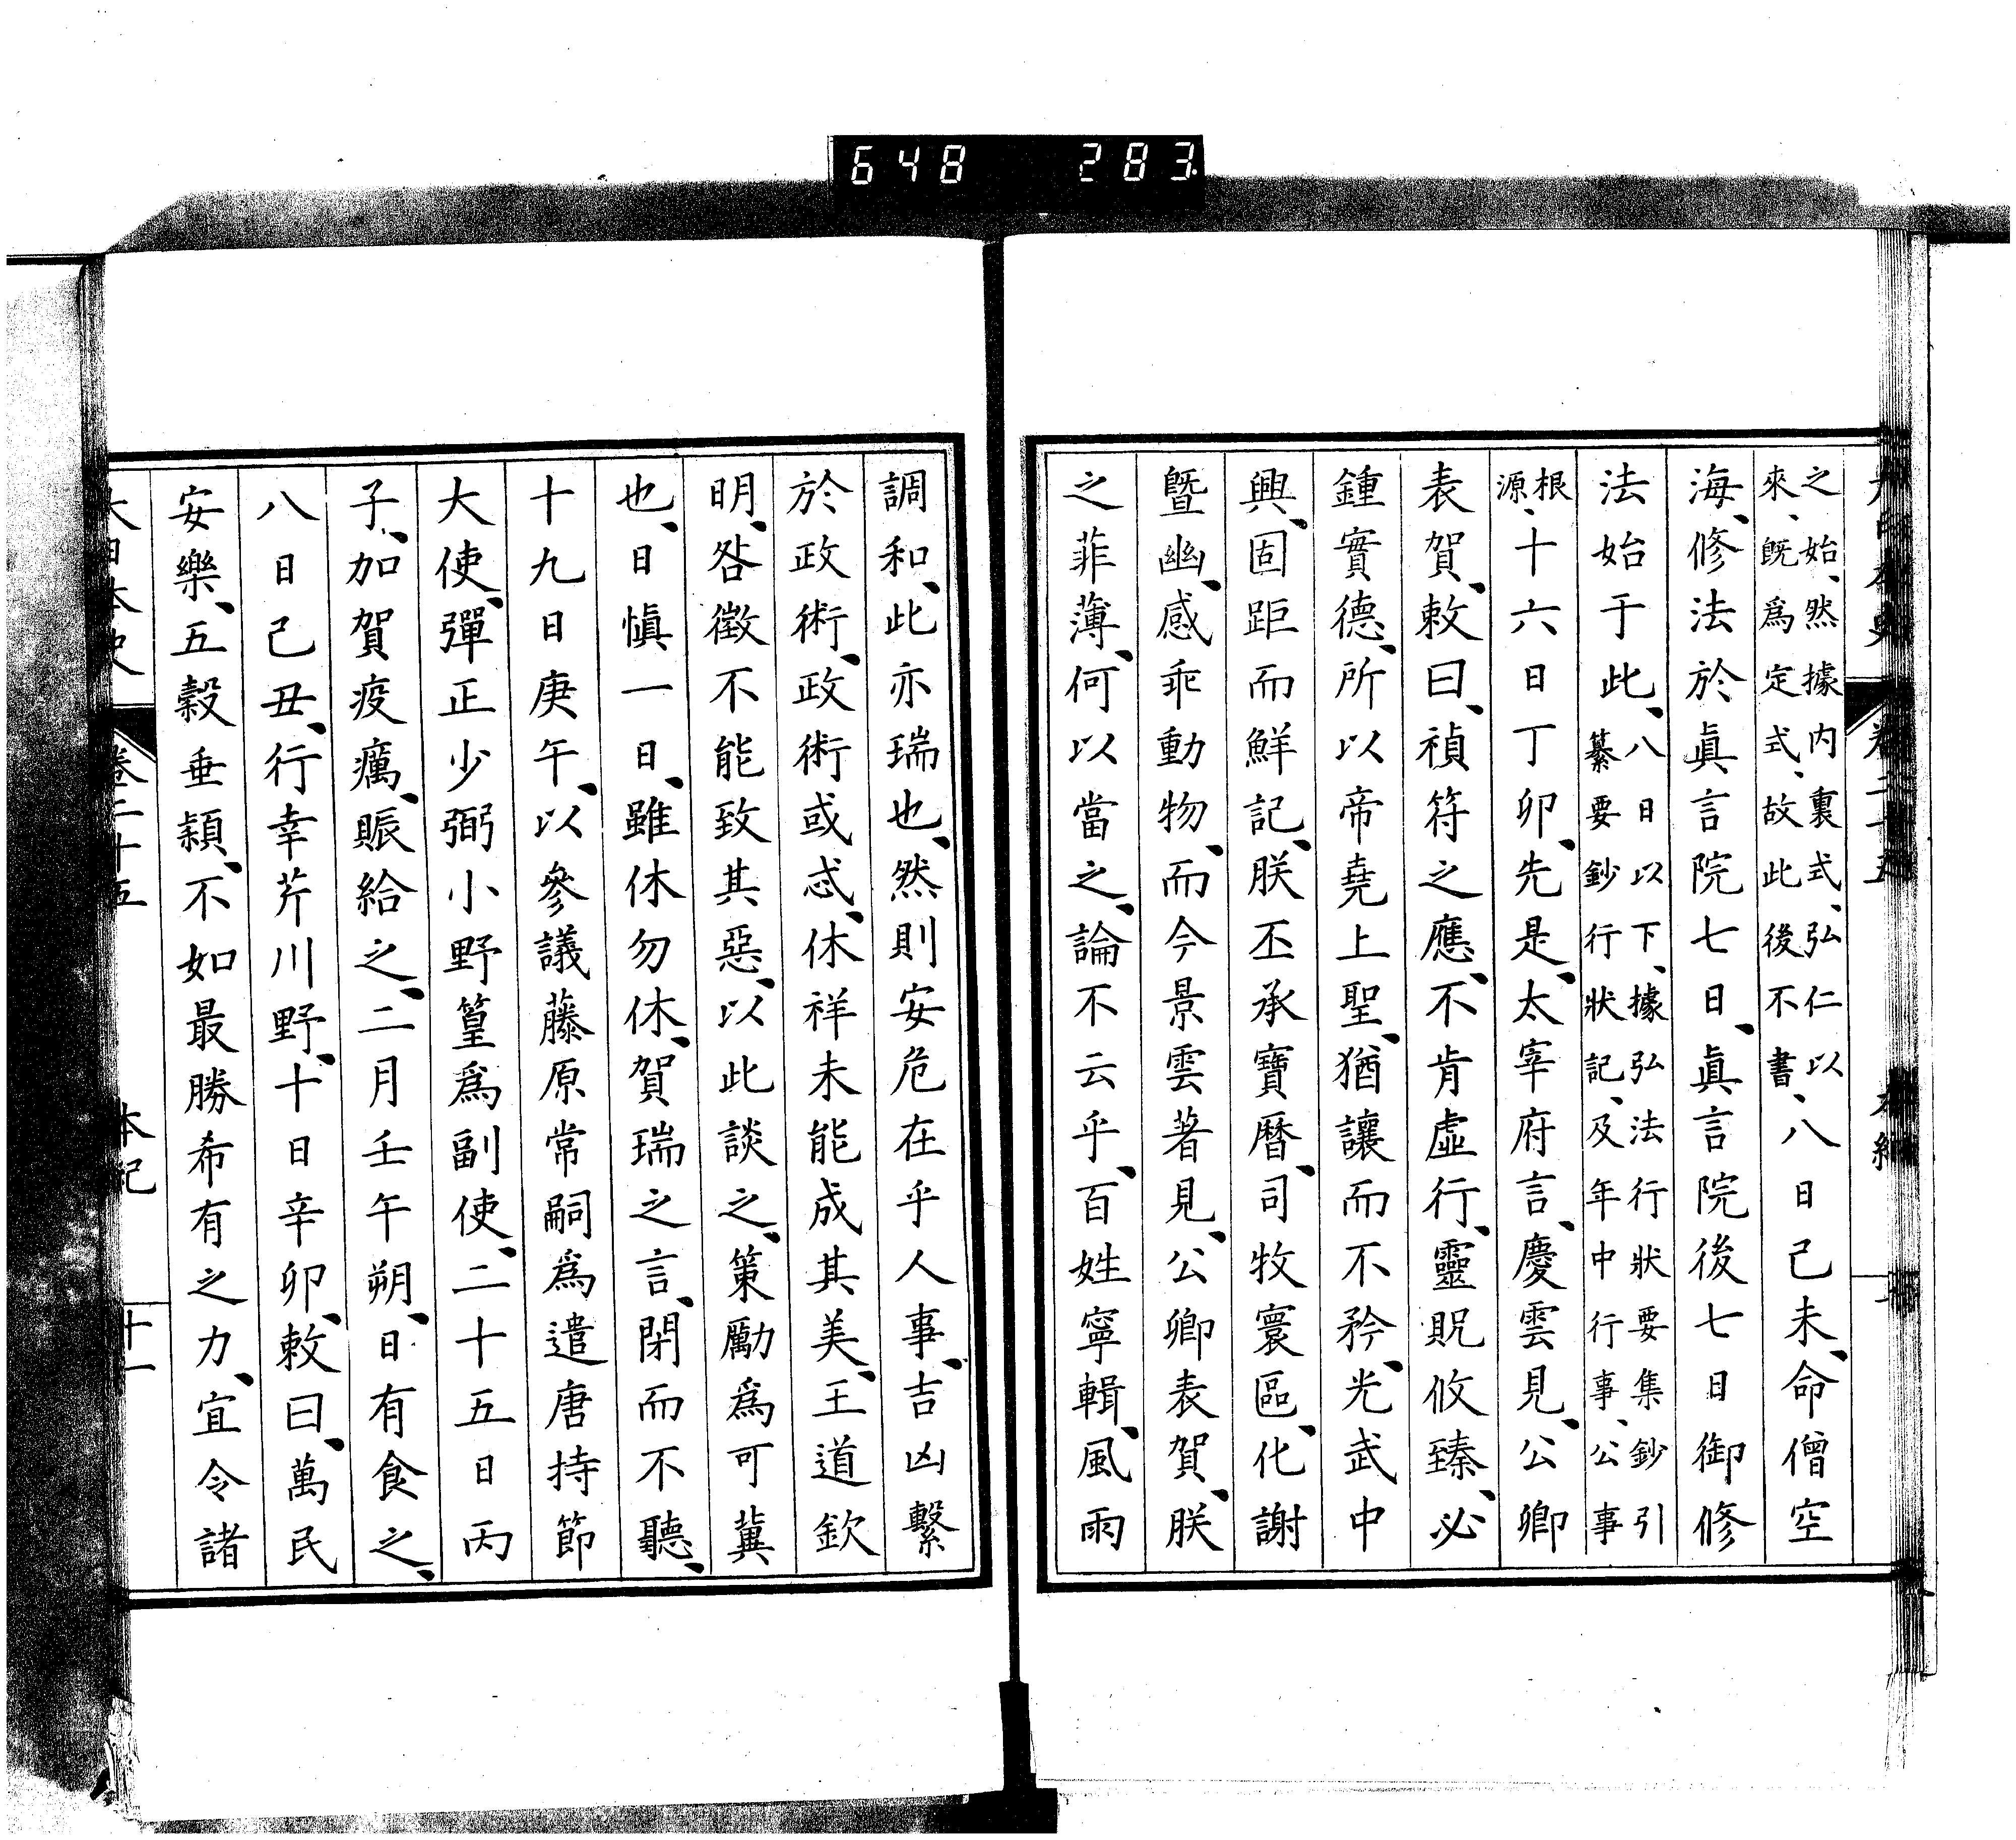 648 283
之始、然據内裏式、弘仁以
來、既爲定式、故此後不書、
八日己未、命僧空
海、修法於眞言院七日、眞言院後七日御修
法始于此、
八日以下、據弘法行狀要集鈔引
纂要鈔行狀記、及年中行事、公事
根
源、
十六日丁卯、先是、太宰府言、慶雲見、公卿
表賀、敕曰、禎符之應、不肯虛行、靈貺攸臻、必
鍾實德、所以帝堯上聖、猶讓而不矜、光武中
興、固距而鮮記、朕丕承寶曆、司牧寰區、化謝
曁幽、感乖動物、而今景雲著見、公卿表賀、朕
之菲薄、何以當之、論不云乎、百姓寧輯、風雨
調和、此亦瑞也、然則安危在乎人事、吉凶繫
於政術、政術或忒、休祥未能成其美、王道欽
明、咎徵不能致其惡、以此談之、策勵爲可冀
也、日愼一日、雖休勿休、賀瑞之言、閉而不聽、
十九日庚午、以參議藤原常嗣爲遣唐持節
大使、彈正少弼小野篁爲副使、二十五日丙
子、加賀疫癘、賑給之、二月壬午朔、日有食之、
八日己丑、行幸芹川野、十日辛卯、敕曰、萬民
安樂、五穀垂穎、不如最勝希有之力、宜令諸
大日本史 卷二十五 本紀 十一